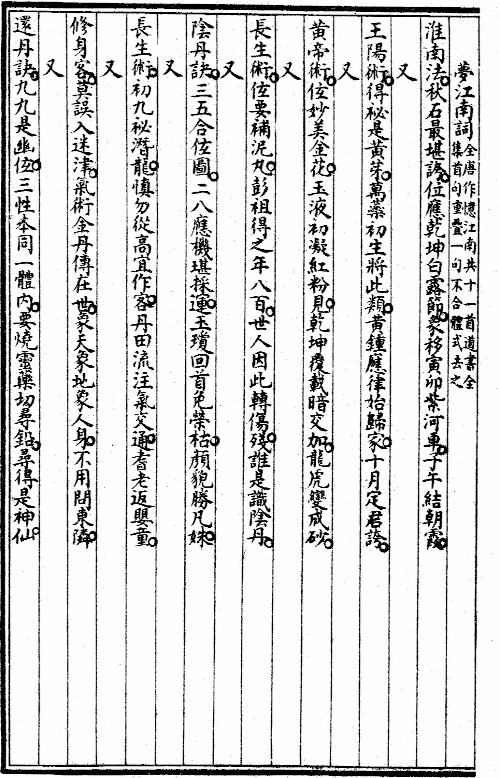 夢江南詞全唐作憶江南共十一首道書全集首句重疊一句不合體式去之
淮南法。秋石最堪誇。位應乾坤白露節。象移寅卯紫河車。子午結朝霞。
又
王陽術。得祕是黃芽。萬蘂初生將此類。黃鍾應律始歸家。十月定君誇。
又
黃帝術。位妙美金花。玉液初凝紅粉見。乾坤覆載暗交加。龍虎變成砂。
又
長生術。位要補泥丸。彭祖得之年八百。世人因此轉傷殘。誰是識陰丹。
又
陰丹訣。三五合位圖。二八應機堪採運。玉瓊回首免榮枯。顏貌勝凡姝。
又
長生術。初九祕潛龍。慎勿從高宜作客。丹田流注氣交通。耆老返嬰童。
又
修身客。莫誤入迷津。氣術金丹傳在世。象天象地象人身。不用問東隣。
又
還丹訣。九九是幽位。三性本同一體內。要燒靈藥切尋鉛。尋得是神仙。